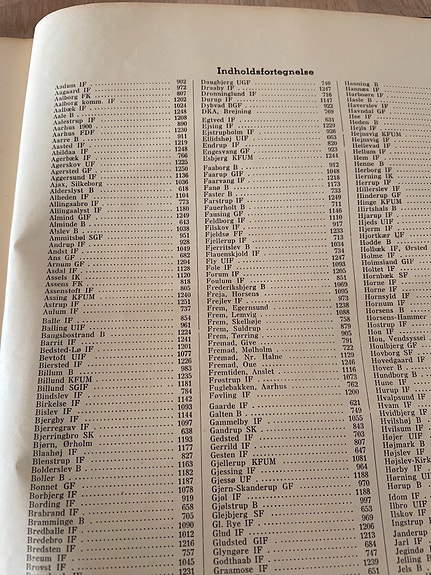 Indholdsfortegnelse
Aadum IF 902
Aagaard IF 972
Aalborg FK 807
Aalborg komm. IF 1202
Aalbæk IF 1024
Aale B 1248
Aalestrup IF 1208
Aarhus 1900 890
Aarhus FDF 1230
Aarre B 911
Aasted IF 1219
Abildaa IF 1248
Agerbæk IF 766
Agerskov UF 1225
Agersted GF 1250
Aggersund IF 1136
Ajax, Silkeborg 1036
Alderslyst B 618
Alheden IF 1104
Allingaabro IF 773
Allingaalyst IF 1180
Almind GIF 1249
Alminde B 643
Alslev B 1038
Ammitsbøl SG 951
Andrup IF 928
Andst IF 1049
Ans GF 682
Arnum GF 1204
Asdal IF 1128
Assels IK 1120
Assens FK 818
Assenstoft IF 805
Assing KFUM 1240
Astrup IF 1251
Aulum IF 737
Balle IF 854
Balling UIF 961
Bangsbostrand B 1224
Barrit IF 1241
Bedsted-Lø IF 1201
Bevtoft UIF 1077
Biersted IF 1226
Billum B 983
Billund KFUM 1235
Billund SGIF 1181
Bindslev IF 784
Birkelse IF 1142
Bislev IF 1093
Bjergby IF 1144
Bjerregrav IF 1097
Bjerringbro SK 638
Bjørn, Ørholm 1193
Blaahøj IF 1177
Blenstrup IF 827
Bolderslev IF 1163
Boller B 1182
Bonnet GF 1187
Borbjerg IF 1078
Bording IF 919
Brabrand IF 658
Bramminge B 705
Bredballe IF 1090
Bredebro IF 1012
Bredsten IF 1216
Breum IF 757
Brovst IF 1045
1231
Daugbjerg UGF
Draaby IF 1247
Dronninglund IF 716
Durup IF 1147
Dybvad BGF 922
DKA, Brejning 769
Egtved IF 631
Ejsing IF 1229
Ejstrupholm IF 926
Ellidshøj UIF 663
Endrup IF 820
Engesvang GF 923
Esbjerg KFUM 1244
Faaborg B 712
Faarup GIF 1048
Faarvang IF 1218
Fanø B 1173
Faster B 733
Farstrup IF 1249
Fauerholt B 711
Fausing GF 1146
Feldborg IF 1110
Filskov IF 917
Fjeldsø FF 1233
Fjellerup IF 713
Fjerritslev IF 1034
Flauenskjold IF 734
Fly UIF 1247
Fole IF 1093
Forum IF 1205
Foulum IF 851
Frederiksbjerg B 1069
Freja, Horsens 1095
Frejlev IF 973
Frem, Egernsund 1238
Frem, Lemvig 1088
Frem, Skelhøje 758
Frem, Suldrup 879
Frem, Tørring 905
Fremad, Give 791
Fremad, Mølholm 722
Fremad, Nr. Halne 1129
Fremad, Oue 1246
Fremtiden, Anslet 1116
Frøstrup IF 1073
Fuglebakken, Aarhus 762
Føvling IF 1200
Gaarde IF 621
Galten B 749
Gammelby IF 1055
Gandrup SK 843
Gedsted IF 703
Gerrild IF 807
Gesten IF 647
Gjellerup KFUM 1081
Gjessing UIF 964
Gjessø UF 1188
Gjern-Skanderup GF 970
Gjøl IF 1188
Gjølstrup B 997
Glejbjerg SF 653
Gl. Rye IF 969
Glud IF 1206
Gludsted GIF 1213
Glyngøre IF 684
Godthaab IF 747
Graamose IF 1239
651
Hanning B
Hannæs IF
Harboøre IF
Hasle B
Haverslev IF
Havndal GF
Hee IF
Heden B
Hejls IF
Hejnsvig KFUM
Hejnsvig IF
Hellevad IF
Hellum IF
Hem IF
Henne B
Herborg IF
Herning IK
Herrup IF
Hillerslev IF
Hinderup GF
Hinge KFUM
Hirtshals B
Hjarup IF
Hjeds UIF
Hjerm IF
Hjortkær UF
Hodde B
Holbæk IF, Ørsted
Holme IF
Holmsland GIF
Holtet IF
Hornbæk SF
Horne IF
Horne IF
Hornsyld IF
Hornum IF
Horsens B
Horsens-Hammer
Hostrup IF
Hou IF
Hou, Vendsyssel
Houlbjerg GF
Hovborg SF
Hovedgaard IF
Hover B
Hundborg B
Hune IF
Hurup IF
Hvalpsund IF
Hvam IF
Hvidbjerg IF
Hvilshøj B
Hvilsum IF
Højer UIF
Højmark B
Højslev IF
Højslev-Kirk
Hørby IF
Hørning UIF
Hørup B
Idom IF
Ilbro UIF
Ilskov IF
Ingstrup I
Janderup
Jarl IF
Jegindø
Jelling
Jels B